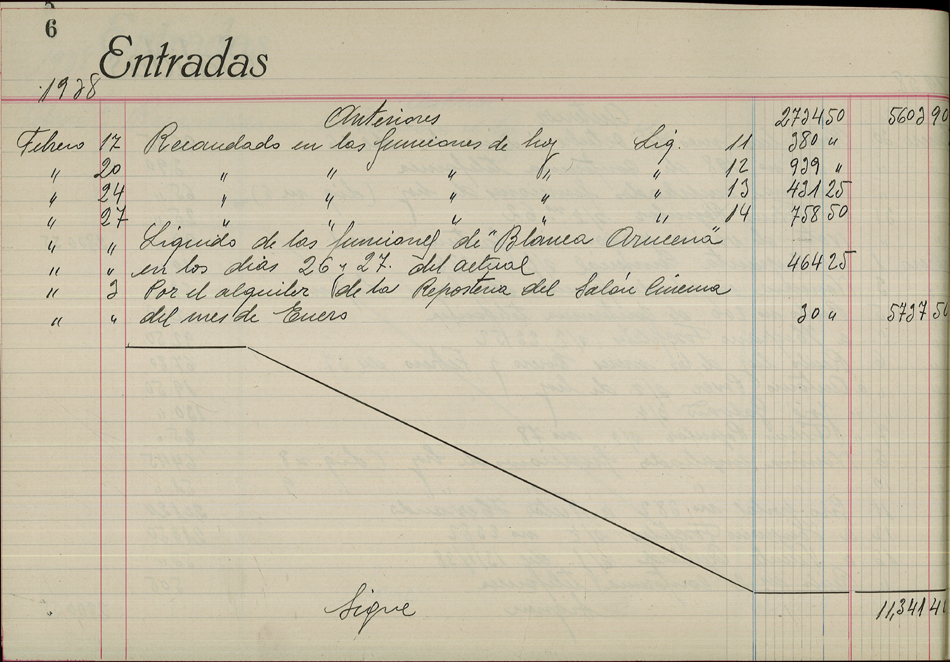 6
Entradas
1938
Anteriores 2734 50 5603 90
Febrero 17 Recaudado en las funciones de hoy Liq. 11 380 "
" 20 " " " " " 12 939 "
" 24 " " " " " 13 431 25
" 27 " " " " " 14 758 50
" " Liquido de las funciones de "Blanca Azucena"
" " en los dias 26 y 27. del actual 464 25
" 3 Por el alquiler de la Reposteria del Salón Cinema
" " del mes de Enero 30 " 5737 50
Sigue 11,341 4